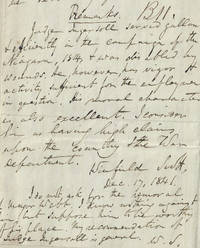 Remarks. B11.
Judge Ingersoll served gallan
& efficiently in the campaign of the
Niagara, 1814, & was disabled by
wounds. He, however, has vigor &
activity sufficient for the employment
in question. His moral character
is also excellent. I consider
him as having high claims
upon the Country & the War
Department.
Winfield Scott,
Dec. 17, 1841.
I do not ask for the removal
of Major Webb. I know nothing against
him, but suppose him to be worthy
of his place. My recommendation of
Judge Ingersoll is general. W. S.